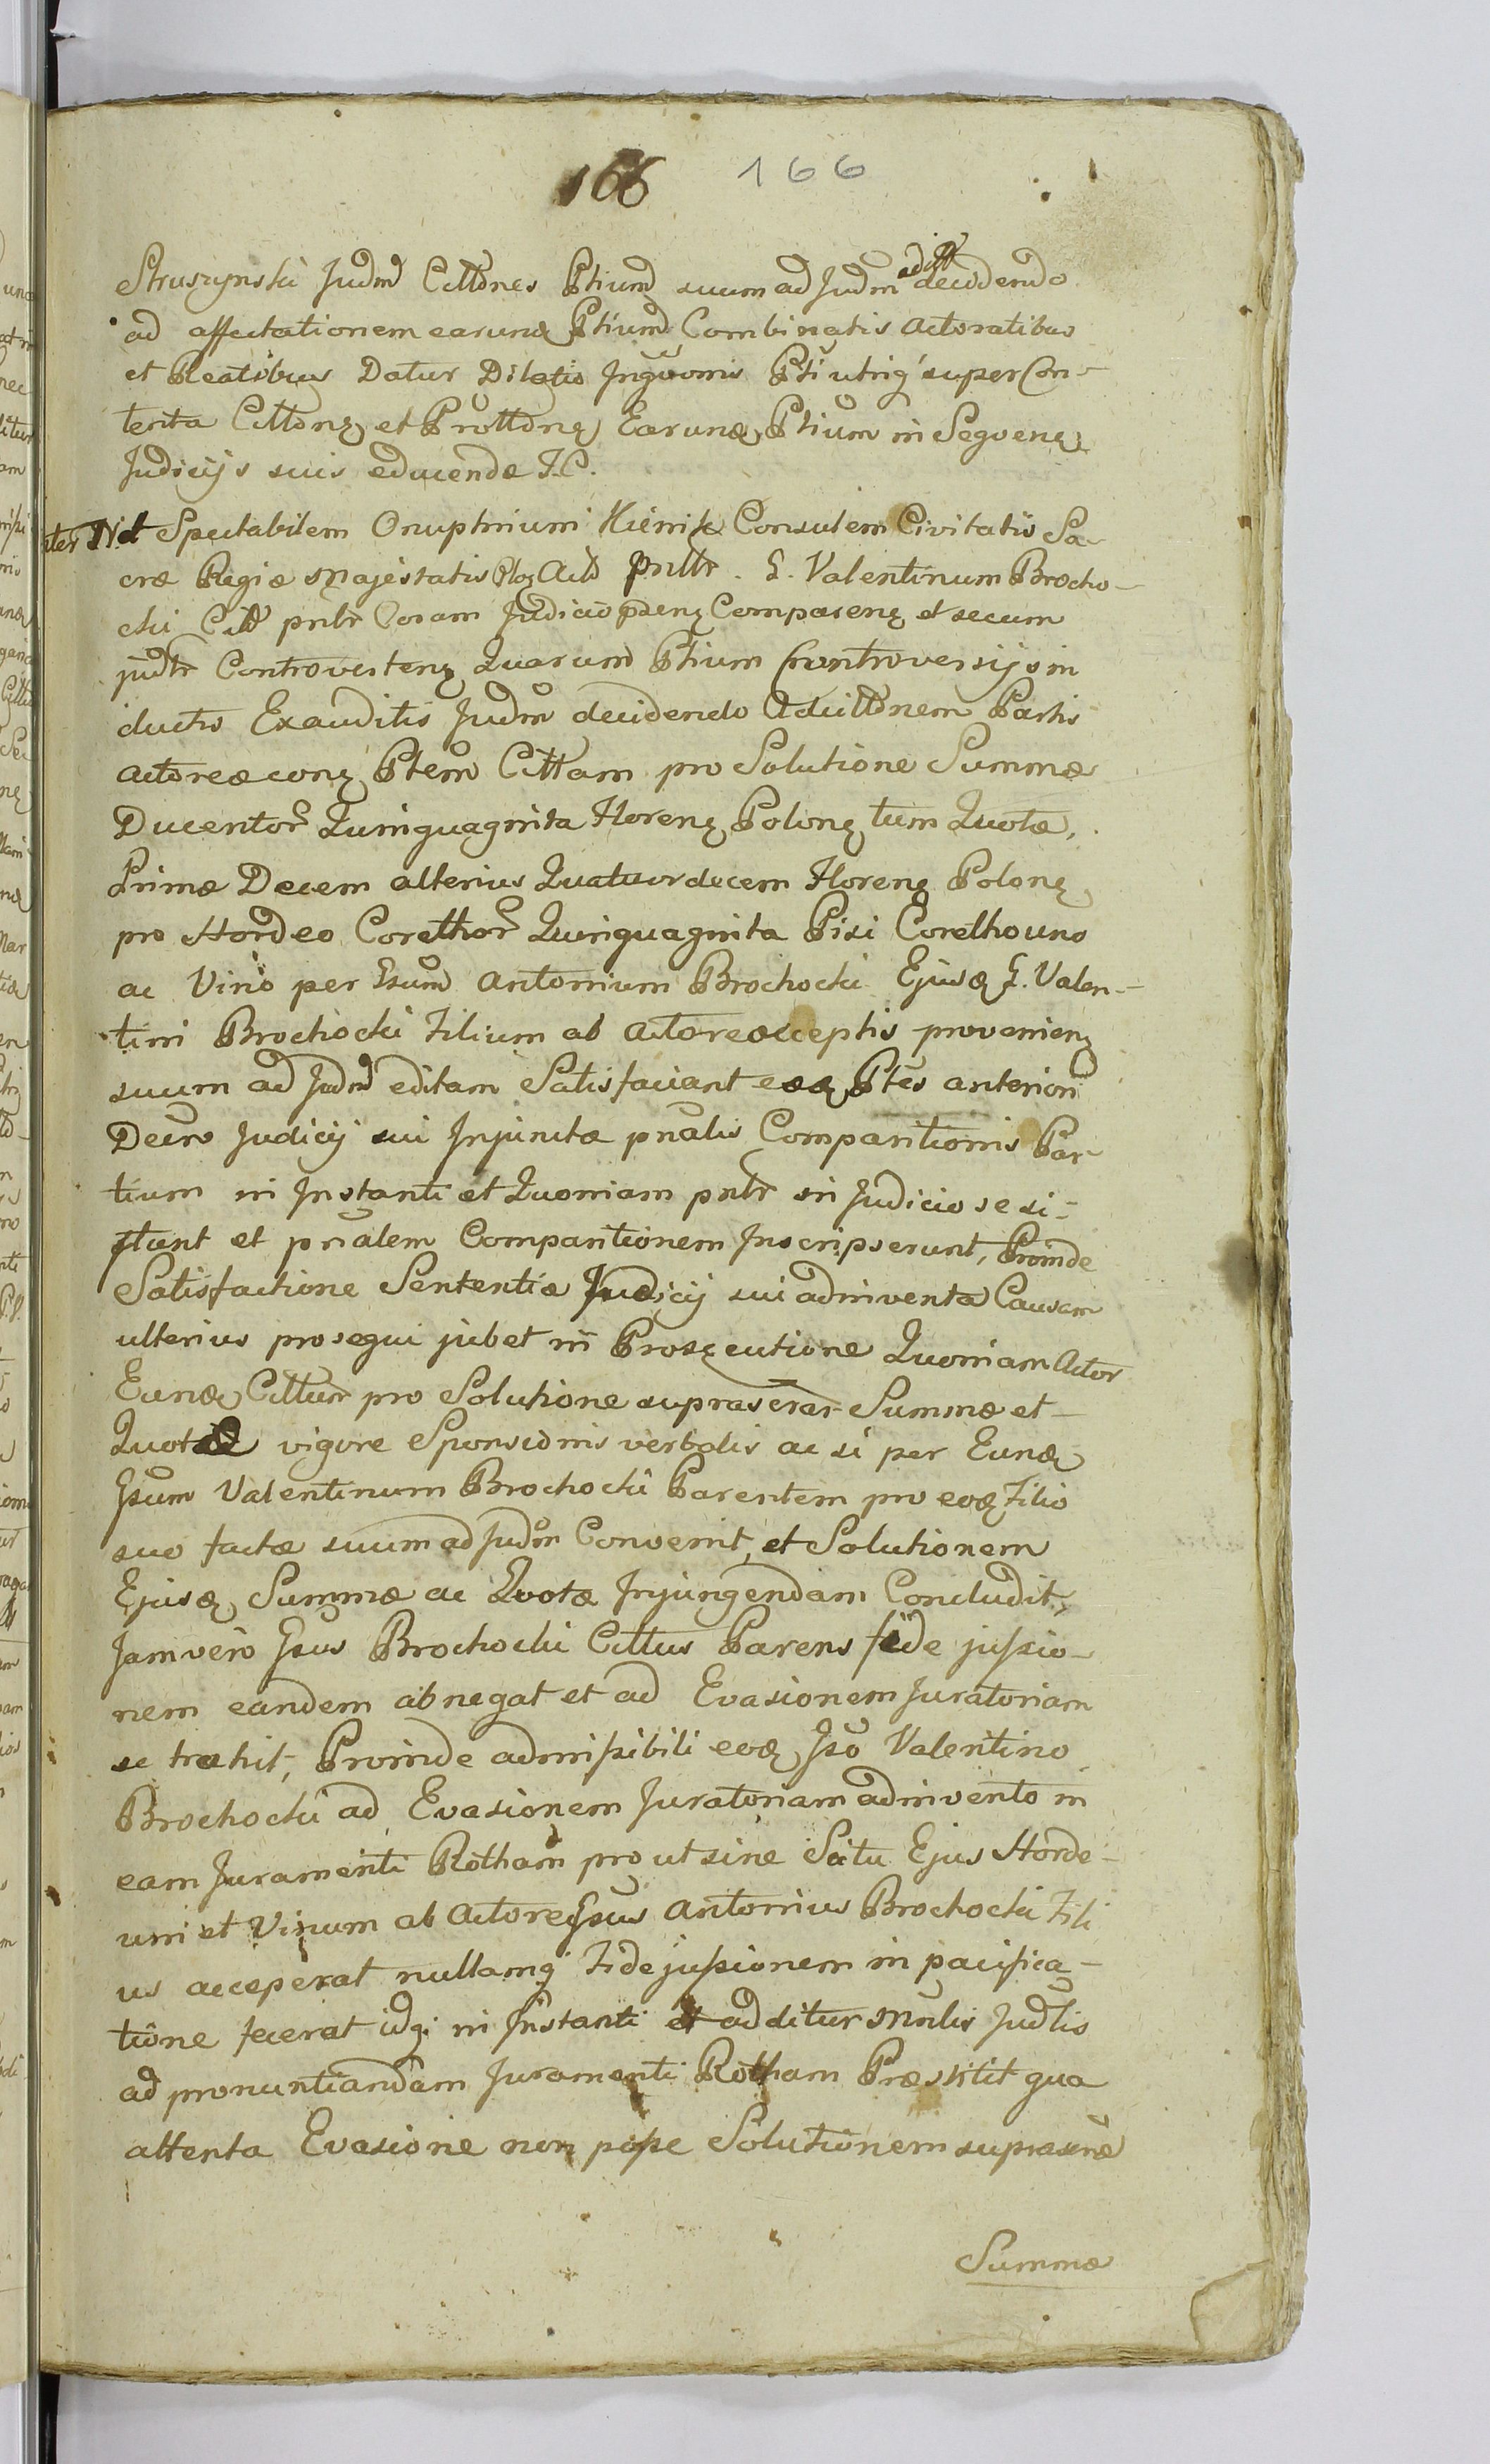 166 166
Struszynski Judm Cittones Ptium suum ad Judm decidendo
ad affectationem earund Ptium Combinatis Actoratibus
et Reatibus Datur Dilatio Inquonis Pti utriq super Con-
tenta Cittonę et Prottonę Earund Ptium in Seqvenę
Judicijs suis educenda I.C.
Spectabilem Onuphrium Kienik Consulem Civitatis Sa-
cræ Regiæ Majestatis Actt pnttr. G. Valentinum Brocho-
cki Citt pnttr Coram Judicio pzenę Comparenę et secum
judtr Controvertenę Quarum Ptium Controversijs in
ductis Exauditis Judm decidendo Adcittonem Partis
Actoreæ conę Ptem Cittam pro Solutione Summæ
Ducentor Quinquaginta Florenę Polonę tum Quotæ,
Primæ Decem alterius Quatuordecem Florenę Polonę
pro Hordeo Coretthor Quinquaginta Pisi Corettho uno
ac Vino per Gsum Antonium Brochocki Ejusd G. Valen-
tini Brochocki Filium ab Actore acceptis provenienę
suum ad Judm editam Satisfaciant eæd Ptes anteriori
Decro Judicij sui Injunctæ pnalis Comparitionis Par-
tium in Instanti et Quoniam pntr in Judicio se si-
stunt et pnalem Comparitionem Inscripserunt, Proinde
Satisfactione Sententiæ Judicij sui adinventa Causam
ulterius prosequi jubet in Prosecutione Quoniam Actor
Eund Cittum pro Solutione suprascrar Summæ et-
Quotæ vigore Sponsionis verbalis ac si per Eund
Gsum Valentinum Brochocki Parentem pro eod Filio
suo factæ suum ad Judm Convenit, et Solutionem
Ejusd Summæ ac Quotæ Injungendam Concludit,
Jam vero Gsus Brochocki Cittus Parens fide jussio-
nem eandem abnegat et ad Evasionem Juratoriam
se trahit, Proinde admissibili eod Gso Valentino
Brochocki ad Evasionem Juratoriam adinvento in
eam Juramenti Rotham prout sine Scitu Ejus Horde-
um et Vinum ab Actore Gsus Antonius Brochocki Fili
us acceperat nullamq Fidejussionem in pacifica-
tione fecerat idq in Instanti et additur Mnlis Judlis
ad pronuntiandam Juramenti Rotham Præstitit qua
attenta Evasione non posse Solutionem suprascræ
Summæ